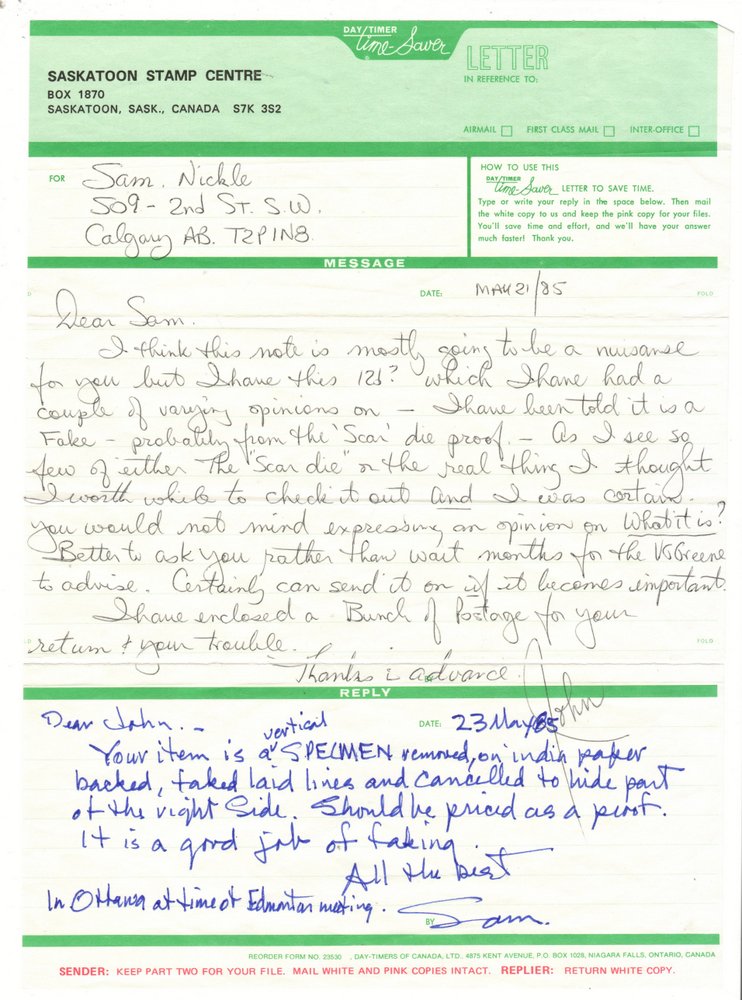 DAY/TIMER
Time-Saver
LETTER
IN REFERENCE TO:
SASKATOON STAMP CENTRE
BOX 1870
SASKATOON, SASK., CANADA S7K 3S2
AIRMAIL FIRST CLASS MAIL INTER-OFFICE
FOR
Sam. Nickle
509 - 2nd St. S.W.
Calgary AB. T2P1N8
HOW TO USE THIS
DAY/TIMER
Time-Saver LETTER TO SAVE TIME.
Type or write your reply in the space below. Then mail
the white copy to us and keep the pink copy for your files.
You'll save time and effort, and we'll have your answer
much faster! Thank you.
MESSAGE
DATE: MAY 21/85
FOLD
Dear Sam.
I think this note is mostly going to be a nuisanse
for you but I have this 12d? which I have had a
couple of varying opinions on - I have been told it is a
Fake - probably from the 'Scar' die proof. - As I see so
few of either The "Scar die" or the real thing I thought
I worth while to check it out And I was certain.
you would not mind expressing an opinion on What it is?
Better to ask you rather than wait months for the VGGreene
to advise. Certainly can send it on if it becomes important.
I have enclosed a Bunch of Postage for your
return & your trouble.
FOLD
Thanks in advance.
John
REPLY
Dear John. -
DATE: 23 May 85
vertical
Your item is a SPECIMEN removed, on india paper
backed, faked laid lines and cancelled to hide part
of the right side. Should be priced as a proof.
It is a good job of faking.
All the best
In Ottawa at time of Edmonton meeting.
BY Sam.
REORDER FORM NO. 23530 , DAY-TIMERS OF CANADA, LTD., 4875 KENT AVENUE, P.O. BOX 1028, NIAGARA FALLS, ONTARIO, CANADA
SENDER: KEEP PART TWO FOR YOUR FILE. MAIL WHITE AND PINK COPIES INTACT. REPLIER: RETURN WHITE COPY.